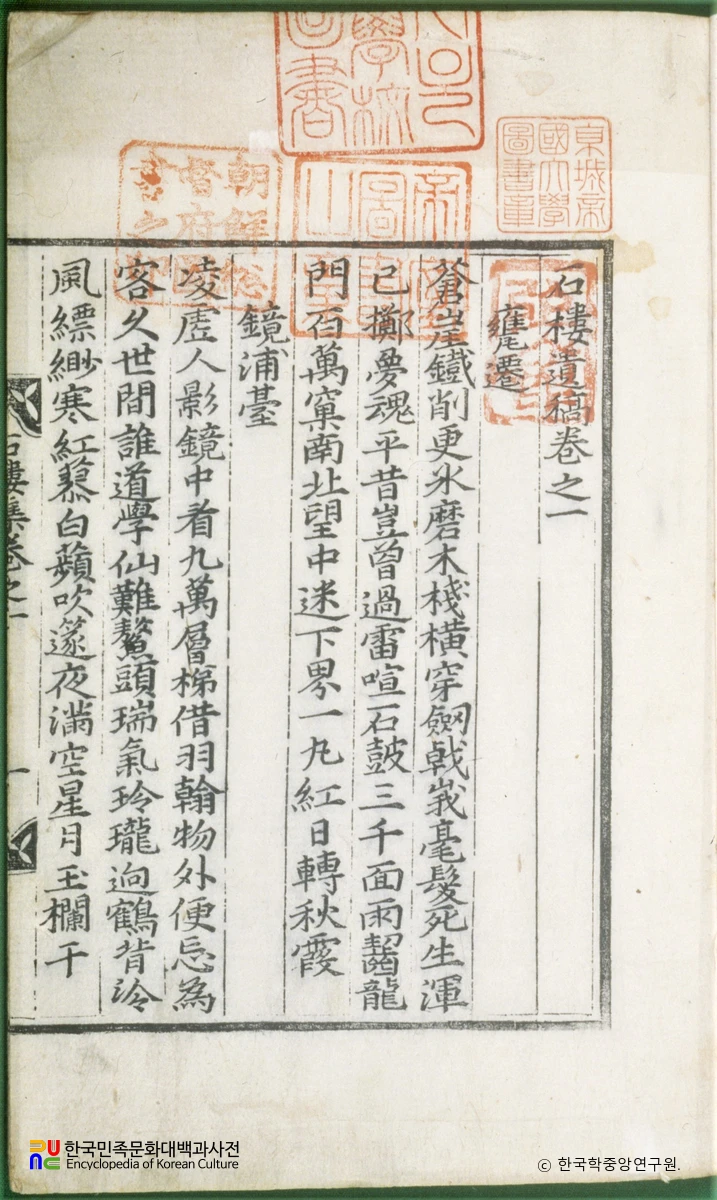 京城帝
國大學
圖書章
朝鮮總
督府圖
書之
石樓遺稿卷之一
甕遷
蒼崖鐵削更氷磨木棧橫穿劒戟峩毫髮死生渾
已擲夢魂平昔豈曾過雷喧石鼓三千面雨齧龍
門百萬窠南北望中迷下界一丸紅日轉秋霞
鏡浦臺
凌虛人影鏡中看九萬層梯借羽翰物外便忘為
客久世間誰道學仙難鰲頭瑞氣玲瓏逈鶴背泠
風縹緲寒紅蓼白蘋吹篴夜滿空星月玉欄干
石樓集卷之一 一
한국민족문화대백과사전
Encyclopedia of Korean Culture
© 한국학중앙연구원.